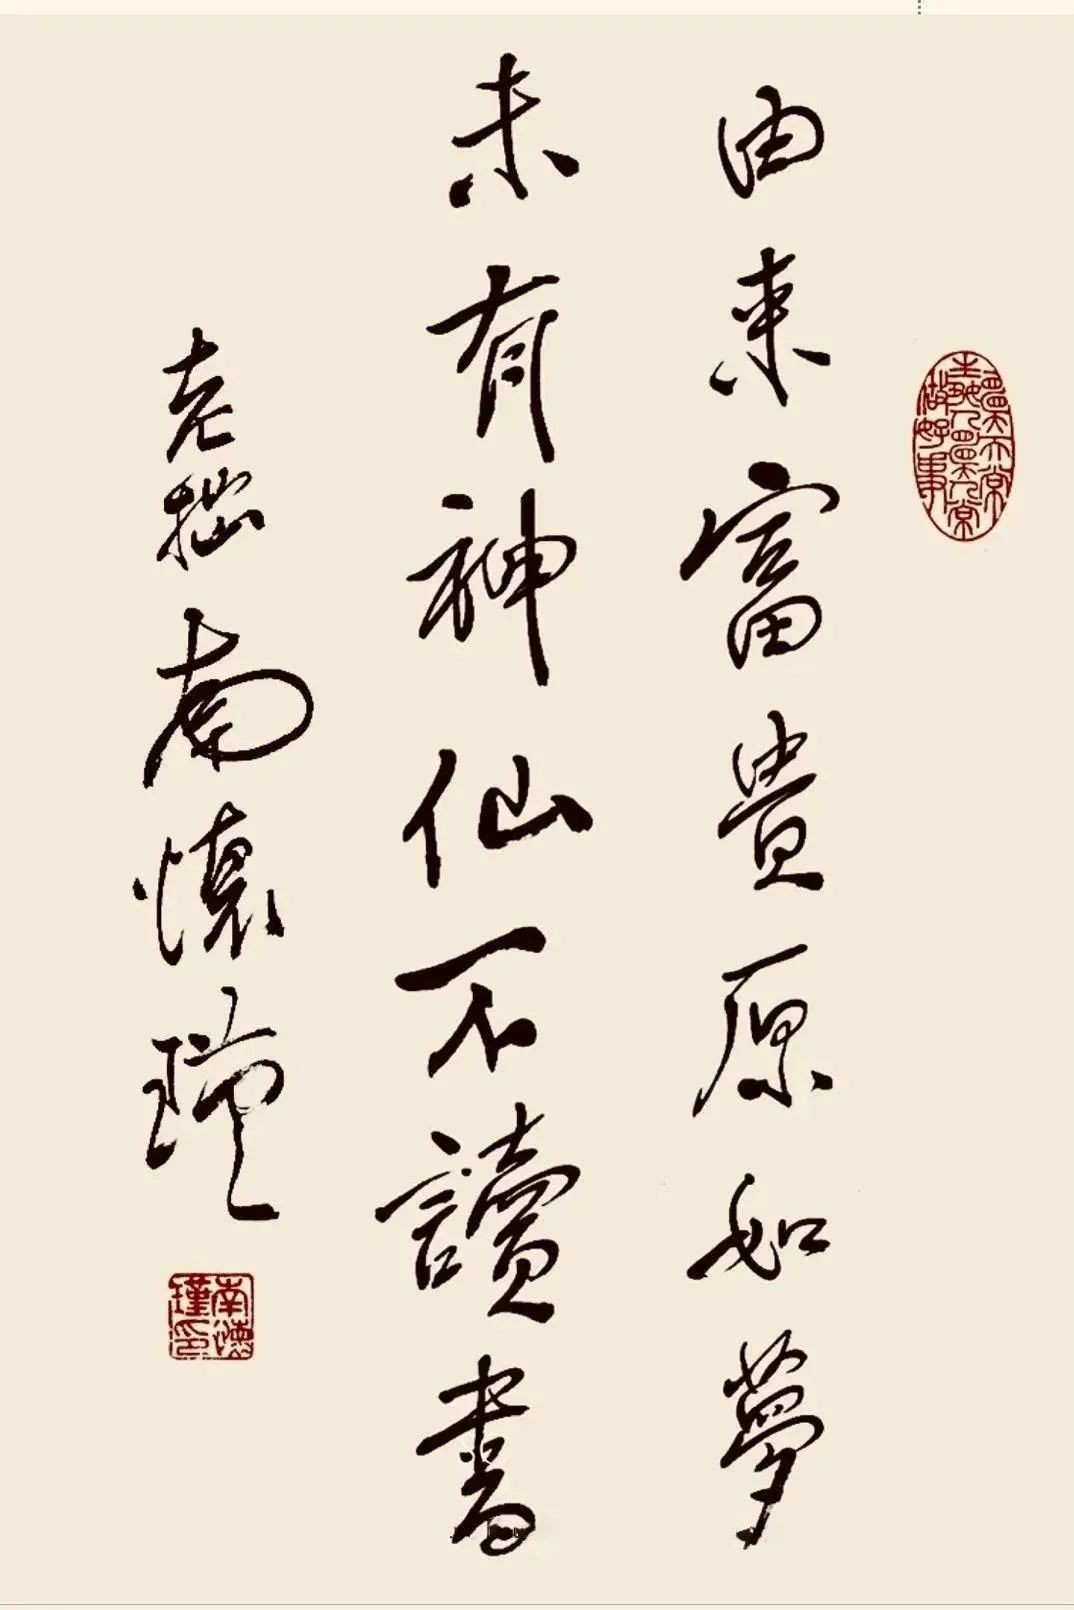 由来富貴原如夢
未有神仙不讀書
老拙南懷瑾
南懷瑾印